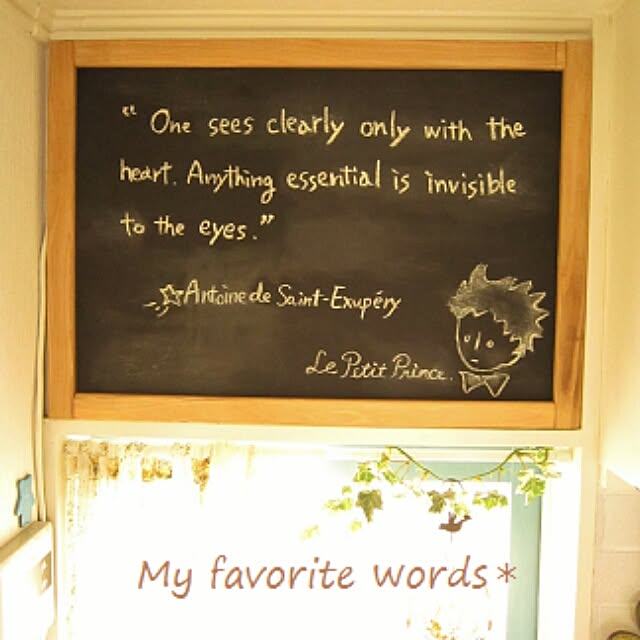 “ One sees clearly only with the
heart. Anything essential is invisible
to the eyes.”
☆Antoine de Saint-Exupéry
Le Petit Prince.
My favorite words*